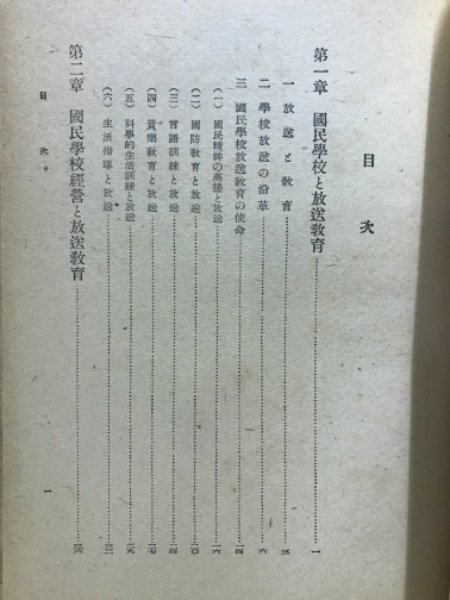 目次
第一章 國民學校と放送教育
一 放送と教育
二 學校放送の沿革
三 國民學校放送教育の使命
(一) 國民精神の高揚と放送
(二) 國防教育と放送
(三) 言語訓練と放送
(四) 音樂教育と放送
(五) 科學的生活訓練と放送
(六) 生活指導と放送
第二章 國民學校經營と放送教育
目次
一